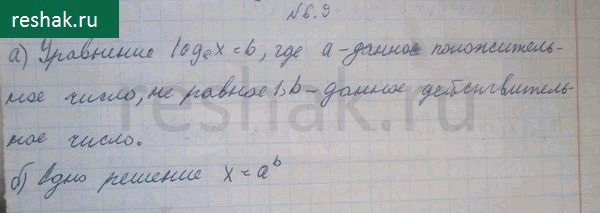 reshak.ru
№6.9
а) Уравнение logₐx = b, где a - данное положитель-
ное число, не равное 1, b - данное действитель-
ное число.
б) Одно решение x = aᵇ
reshak.ru